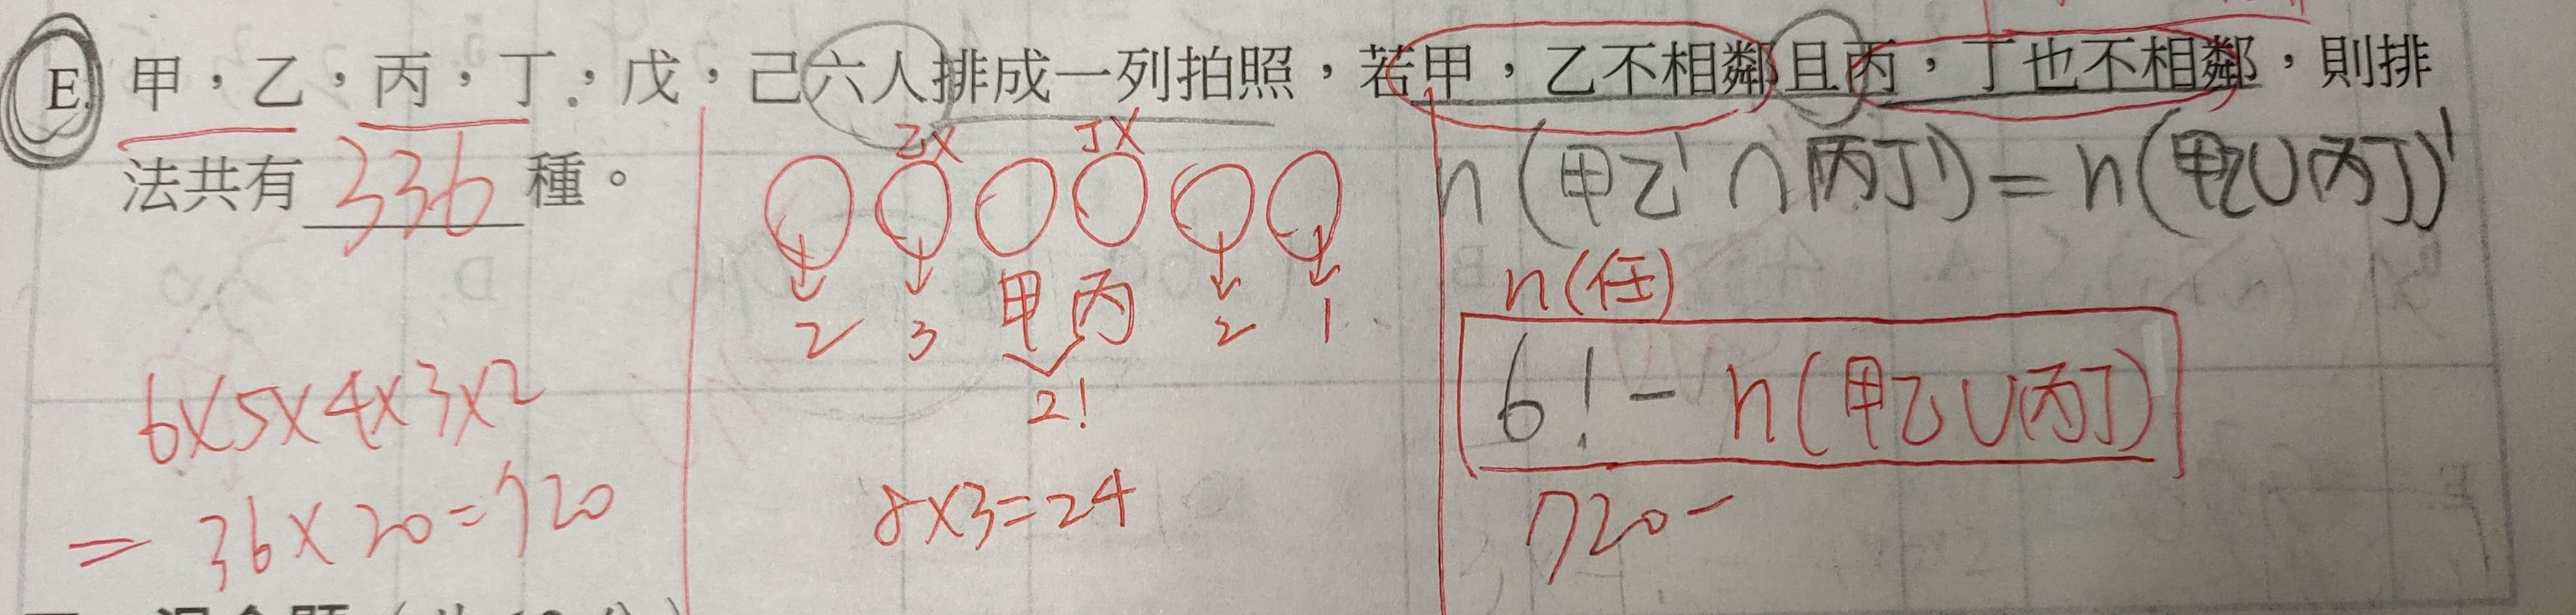 E. 甲，乙，丙，丁，戊，己六人排成一列拍照，若甲，乙不相鄰且丙，丁也不相鄰，則排
法共有 336 種。
6×5×4×3×2
= 36×20=720
乙X 丁X
甲 丙
2 3 2 1
2!
8×3=24
n(甲乙'∩丙丁')=n(甲乙∪丙丁)'
n(任)
6!-n(甲乙∪丙丁)
720-